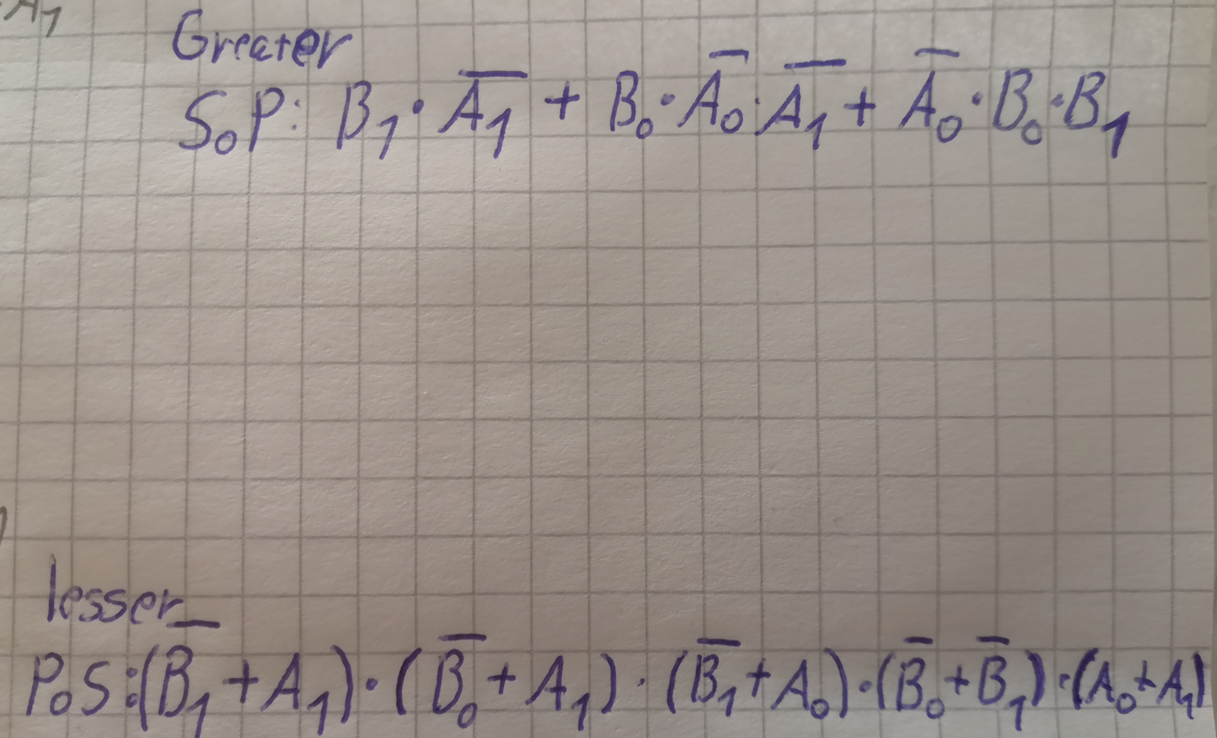 A₁
Greater
SoP: B₁·A̅₁ + B₀·A̅₀·A̅₁ + A̅₀·B₀·B₁
lesser
PoS:(B̅₁+A₁)·(B̅₀+A₁)·(B̅₁+A₀)·(B̅₀+B̅₁)·(A₀+A₁)